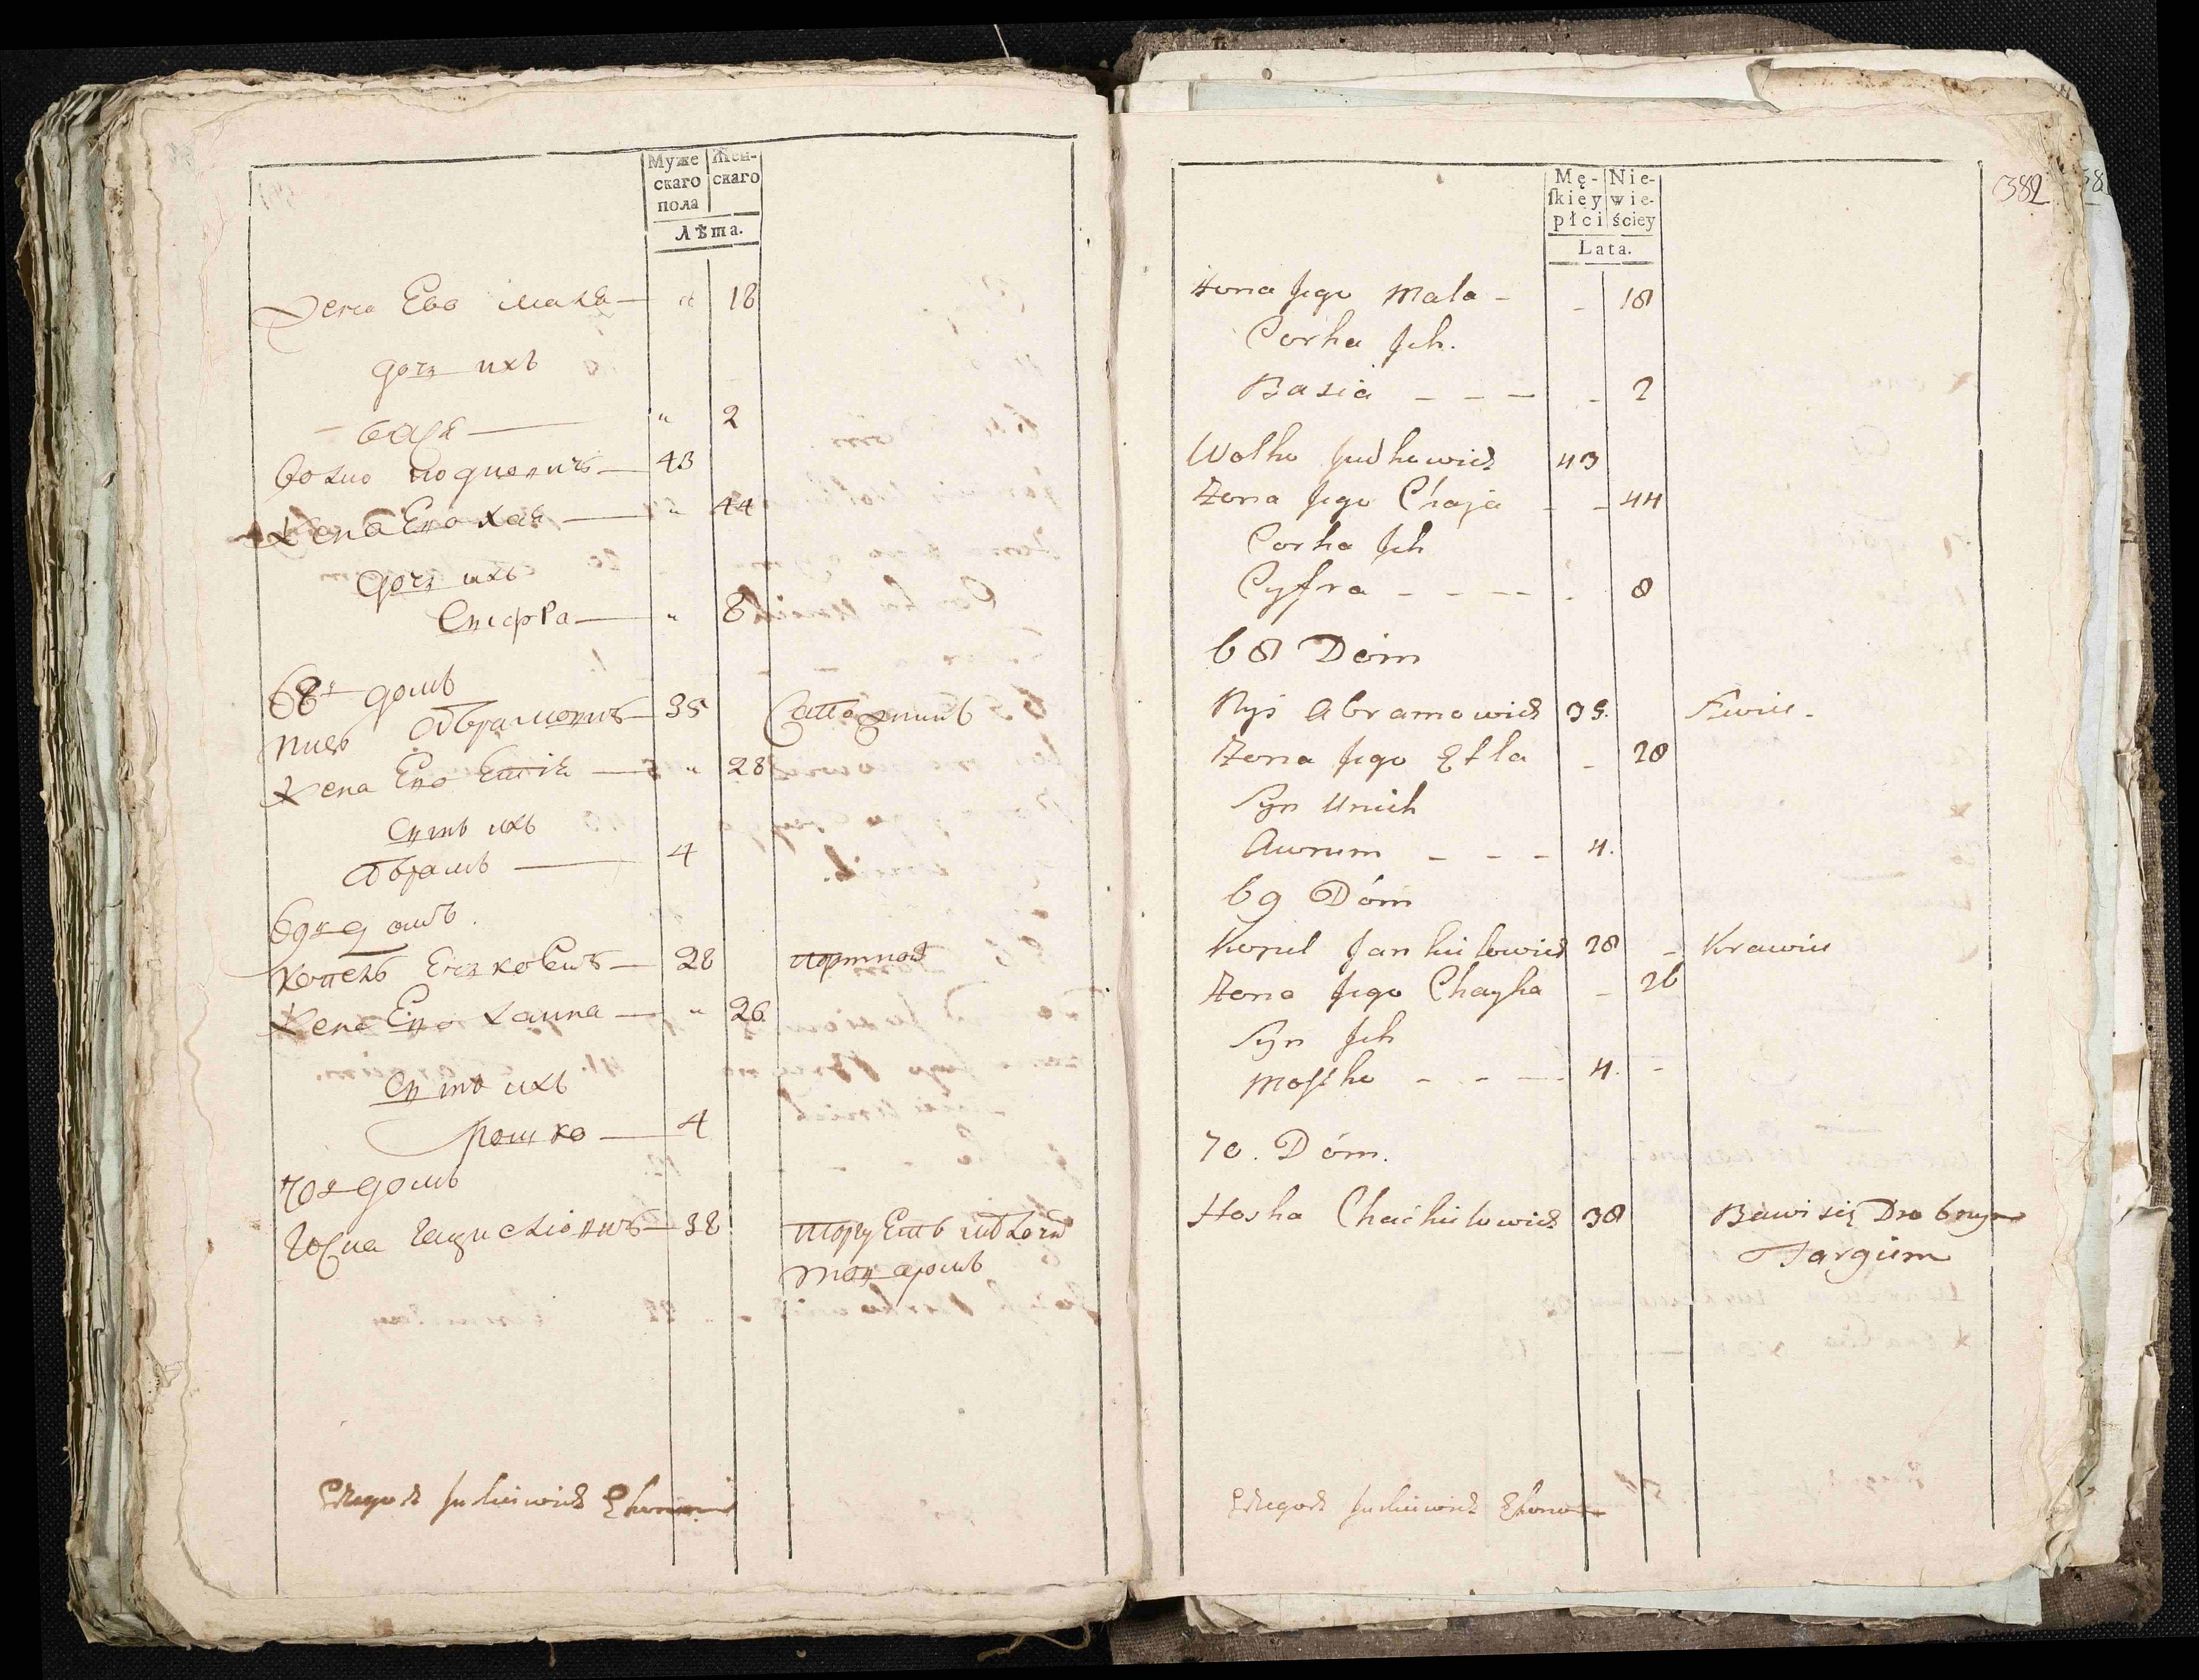 Муже
скаго
пола
Жен-
скаго
Лѣта.
Жена Ево мала — " 18
дочь ихъ
Бася — " 2
Волко Юдковичъ — 43
Жена Ево Хая — " 44
дочь ихъ
Сыфра — " 8
68й домъ
Абрамовичъ — 35
Жена Ево — " 28
Сынъ ихъ
Абрамъ — 4
69й домъ
Копель — 28 портной
Жена Ево — " 26
Сынъ ихъ
Мошко — 4
70й домъ
38 торуетъ
товаромъ
Ekonom
Mę-
skiey
płci
Nie-
wie-
ściey
Lata.
382
Żona Jego Mala - - 18
Corka Ich.
Basia - - - - 2
Wolko Judkowicz 43
Żona Jego Chaja - - 44
Corka Ich
Cyfra - - - - 8
68 Dóm
Rys Abramowicz 35. Szwiec.
Żona Jego Etla - 28
Syn Unich
Awrum - - - 4.
69 Dóm
Kopel Jankielowicz 28 - Krawiec
Żona Jego Chayka - 26
Syn Ich
Moszko - - - 4. -
70. Dóm.
Hoska Chackielowicz 38 Bawi się Drobnym
Targiem
Ekonom